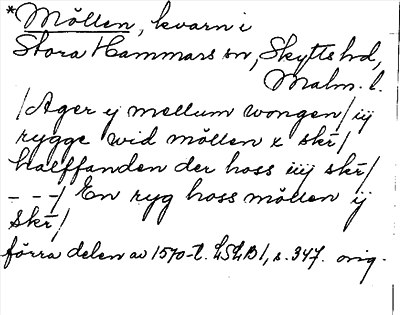 *Möllen, kvarn i
Stora Hammars sn, Skytts hd,
Malm. l.
/Ager ij mellum wongen/ iij
rygge wid möllen x skr/
halffanden der hoss iiij skr/
- - -/ En ryg hoss möllen ij
skr/
förra delen av 1570-t. LSLB 1, s. 347. orig.